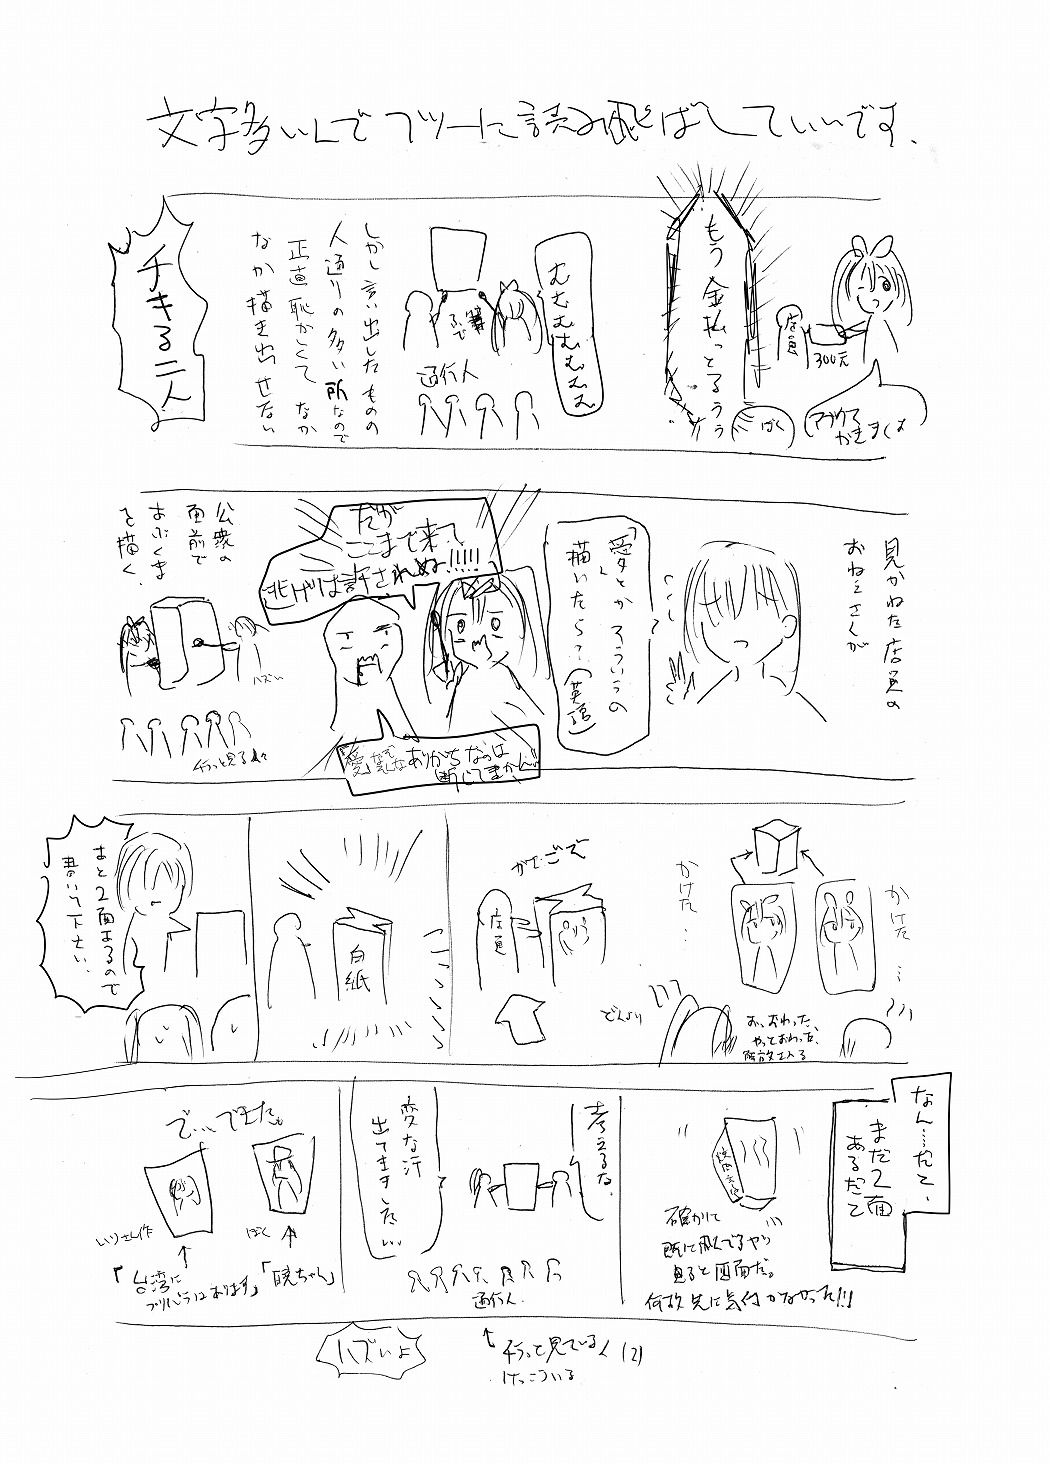 文字多いんでフツーに読み飛ばしていいです。
もう金払っとるぅぅ
店員
300元
ぼく
むむむむむむむ
通行人
しかし言い出したものの
人通りの多い所なので
正直恥かしくてなか
なか描き出せない
チキる二人
見かねた店員の
おねえさんが
「愛」とかそういうの
描いたら?(英語)
だが
ここまで来て
逃げは許されぬ!!!!!
ありがちなのは
断じてまかん!!
公衆の
面前で
まぶくま
を描く。
ハズい
行っと見る人々
かけた…
かけた…
お、おわった、
やっておわった、
解放される
でんより
がでごで
店員
白紙
あと2面あるので
書いて下さい。
なん……だて、
まだ2面
あるだて
確かに
既に飛んでるヤツ
見ると四面だ。
何故先に気付かなかった!!!
考えるな、
変な汗
出てます危…
通行人
で…できた。
ぼく
「暁ちゃん」
いりさん作
「台湾に
ブリバラはおります」
ハズいよ
行って見ている人(2)
けっこういる